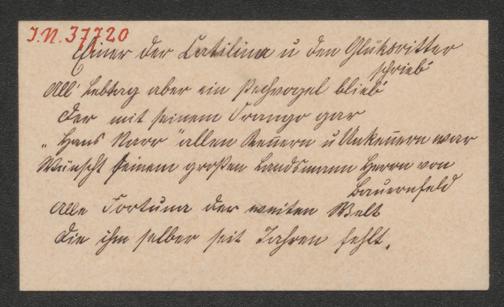 J.N. 37720
Einer der Catilina u den Glüksritter
schrieb
All' Lebtag aber ein Pechvogel blieb
Der mit seinem Orango gar
„Hans Narr" allen Kennern u Unkennern war
Wünscht seinem großen Landsmann Herrn von
Bauernfeld
Alle Fortuna der weiten Welt
Die ihm selber seit Jahren fehlt.